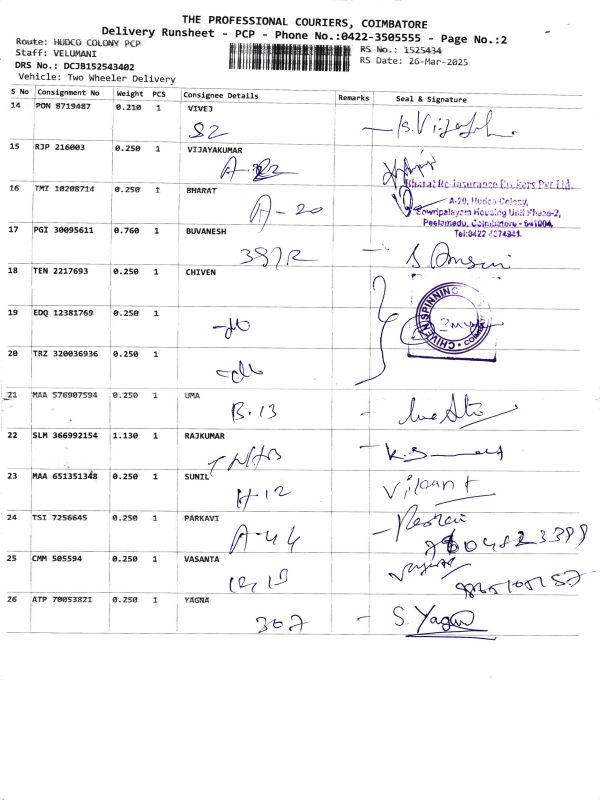 THE PROFESSIONAL COURIERS, COIMBATORE
Delivery Runsheet - PCP - Phone No.:0422-3505555 - Page No.:2
Route: HUDCO COLONY PCP
RS No.: 1525434
Staff: VELUMANI
RS Date: 26-Mar-2025
DRS No.: DCJB152543402
Vehicle: Two Wheeler Delivery
S No Consignment No Weight PCS Consignee Details Remarks Seal & Signature
14 PON 8719487 0.210 1 VIVEJ
82
15 RJP 216003 0.250 1 VIJAYAKUMAR
16 TMT 10208714 0.250 1 BHARAT
A-20
Bharat Re-Insurance Brokers Pvt Ltd.
A-20, Hudco Colony,
Sowripalayam Housing Unit Phase-2,
Peelamedu, Coimbatore - 641004.
17 PGI 30095611 0.760 1 BUVANESH
18 TEN 2217693 0.250 1 CHIVEN
CHIVEN SPINNING
19 EDQ 12381769 0.250 1
-do
20 TRZ 320036936 0.250 1
-do
21 MAA 576907594 0.250 1 UMA
B.13
22 SLM 366992154 1.130 1 RAJKUMAR
TNHB
23 MAA 651351348 0.250 1 SUNIL
H-12
24 TSI 7256645 0.250 1 PARKAVI
A-44
25 CMM 505594 0.250 1 VASANTA
26 ATP 70053821 0.250 1 YAGNA
307 - S. Yagna